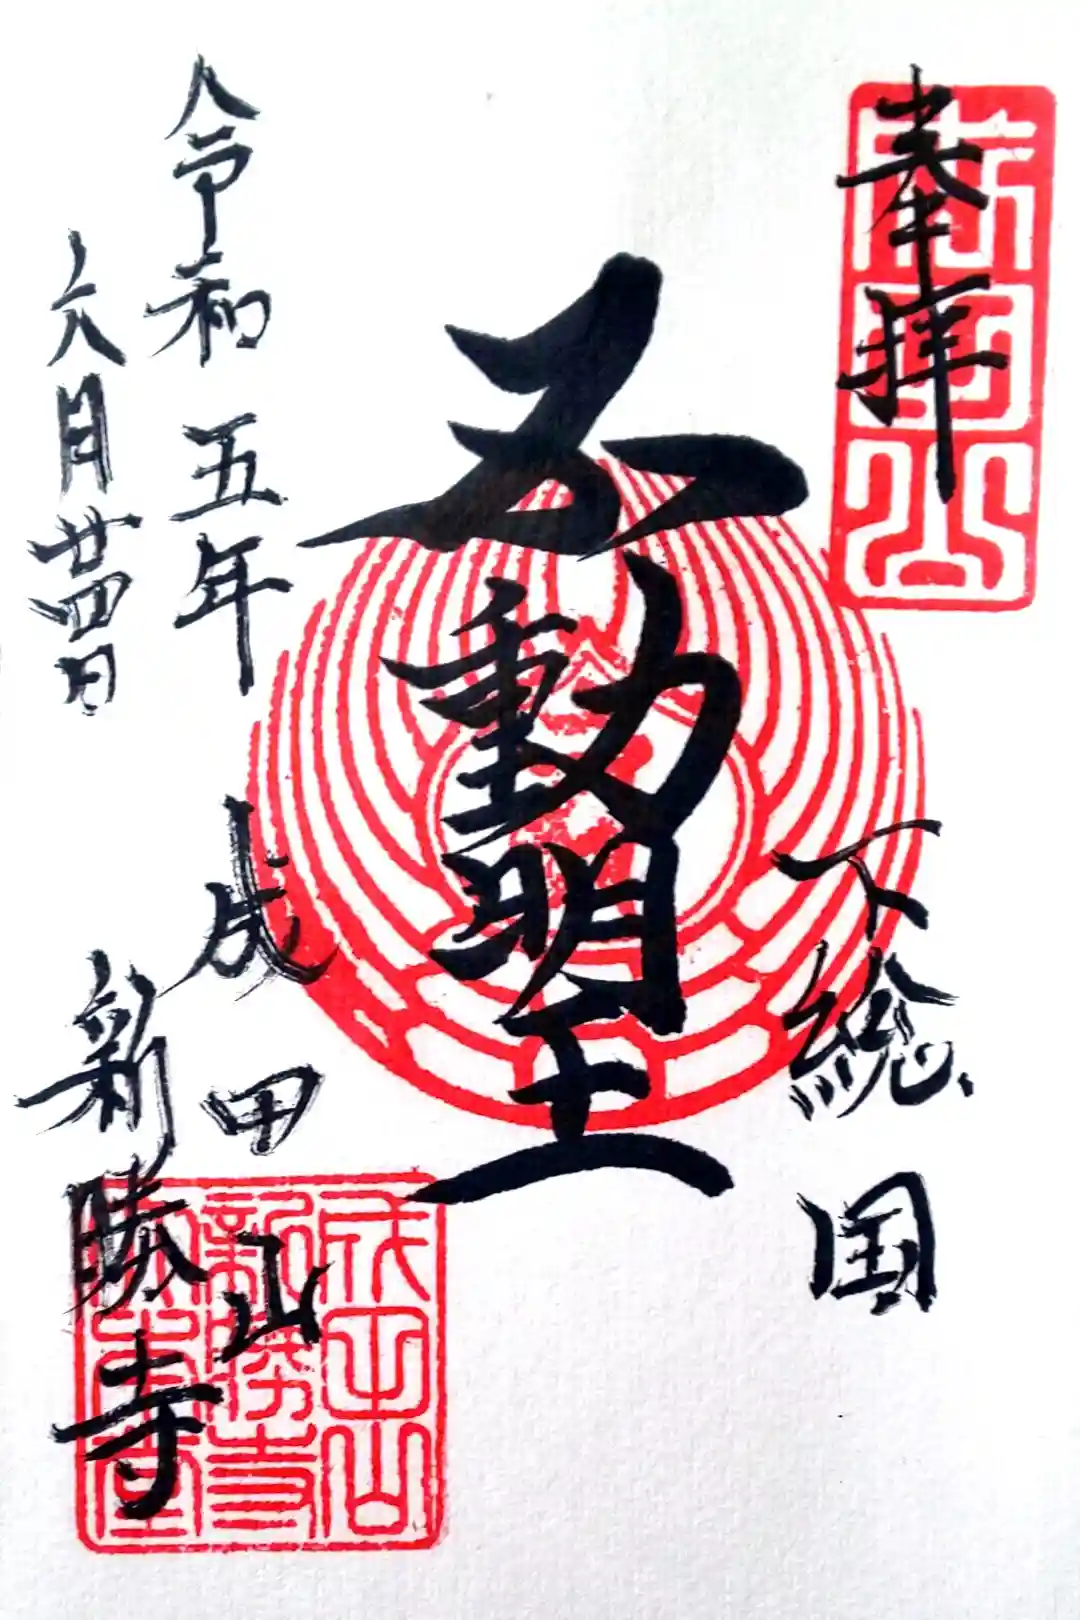 奉拝
下総国
不動明王
令和五年
六月廿四日
成田山
新勝寺
成田山
新勝寺